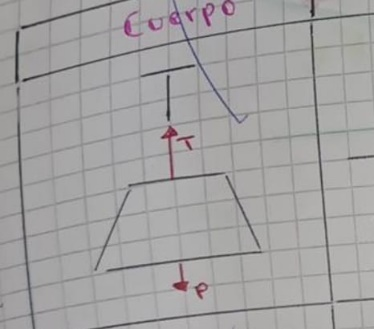 Cuerpo
T
P